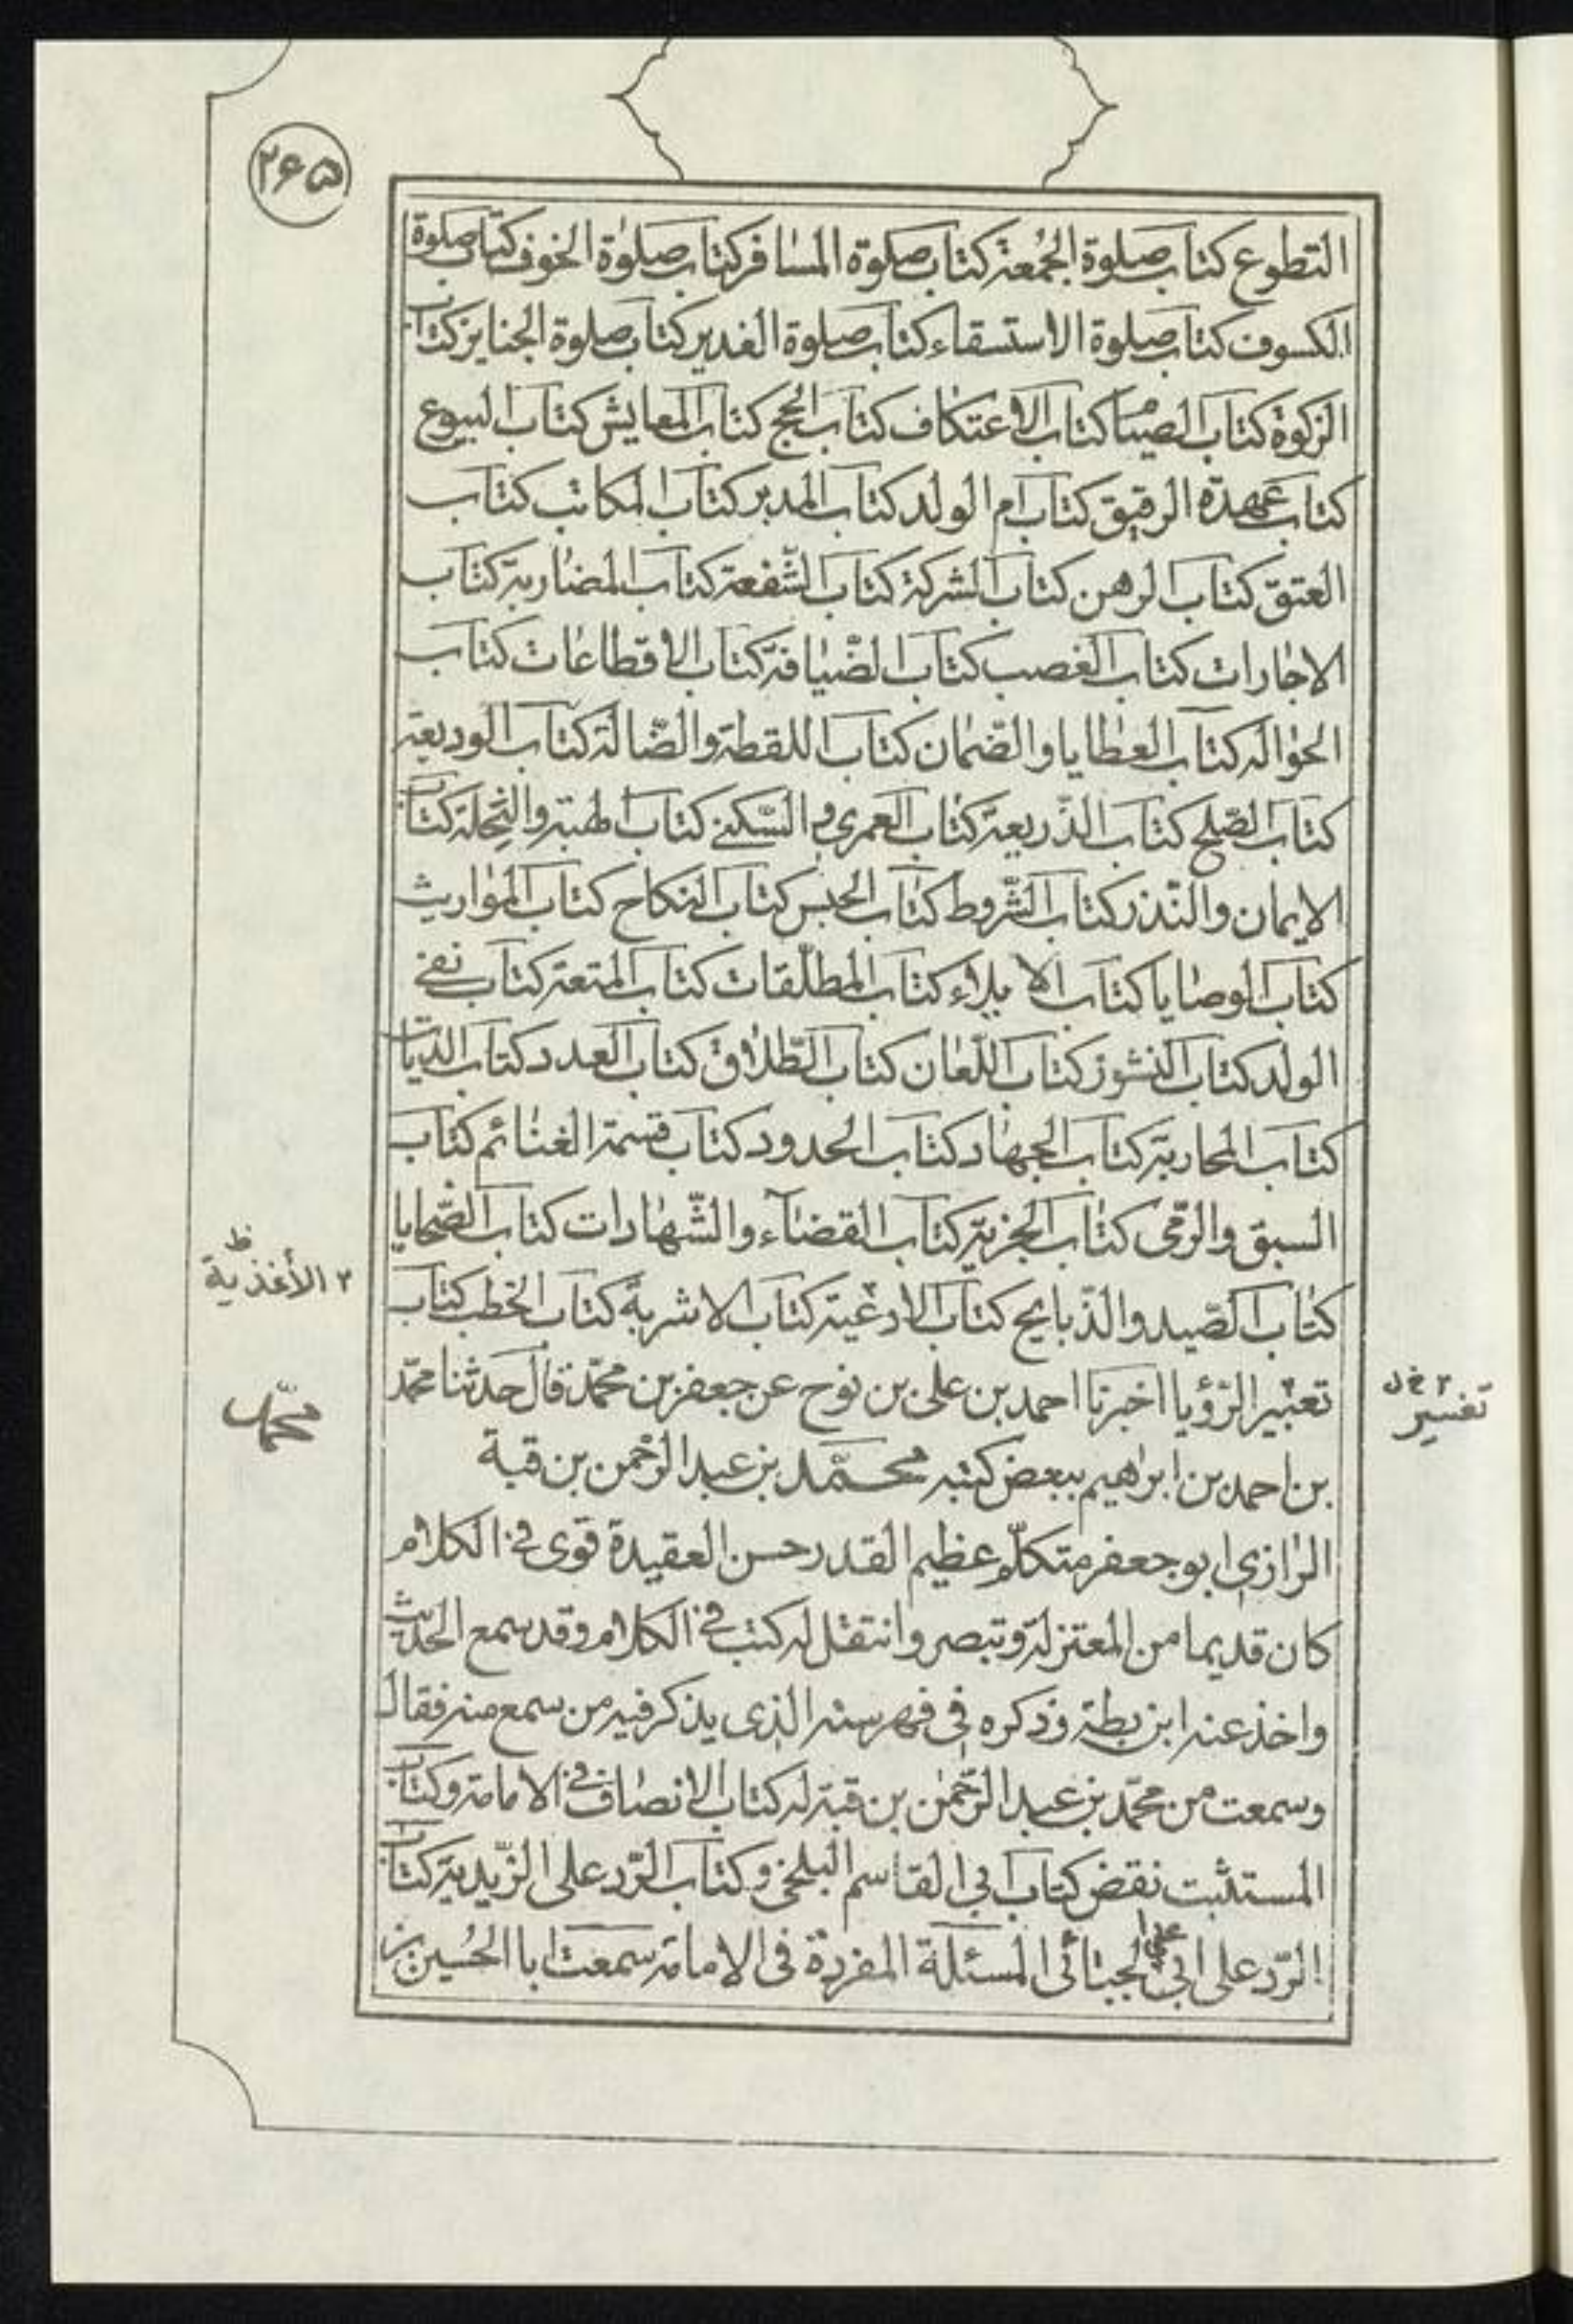 ٢۶۵
التطوع كتاب صلوة الجُمعة كتاب صلوة المسافر كتاب صلوة الخوف كتاب صلوة
الكسوف كتاب صلوة الاستسقاء كتاب صلوة الغدير كتاب صلوة الجنايز كتاب
الزكوة كتاب الصيام كتاب الاعتكاف كتاب الحج كتاب المعايش كتاب البيوع
كتاب عهدة الرقيق كتاب ام الولد كتاب المدبر كتاب المكاتب كتاب
العتق كتاب الرهن كتاب الشركة كتاب الشّفعة كتاب المضاربة كتاب
الاجارات كتاب الغصب كتاب الضّيافة كتاب الاقطاعات كتاب
الحواله كتاب العطايا والضّمان كتاب اللقطة والضّالة كتاب الوديعة
كتاب الصّلح كتاب الذّريعة كتاب العمرى والسّكنى كتاب الهبة والنِّحلة كتاب
الايمان والنّذر كتاب الشّروط كتاب الحبس كتاب النكاح كتاب المواريث
كتاب الوصايا كتاب الايلاء كتاب المطلّقات كتاب المتعة كتاب نفى
الولد كتاب النشوز كتاب اللّعان كتاب الطّلاق كتاب العدد كتاب الديات
كتاب المحاربة كتاب الجهاد كتاب الحدود كتاب قسمة الغنائم كتاب
السبق والرّمى كتاب الجزية كتاب القضاء والشّهادات كتاب الضّحايا
كتاب الصّيد والذّبايح كتاب الادعية كتاب الاشربة كتاب الخطب كتاب
٢ الأغذية ظ
تعبير الرّؤيا اخبرنا احمد بن على بن نوح عن جعفر بن محمّد قال حدثنا محمّد
تفسير ٢ خ ل
بن احمد بن ابراهيم ببعض كتبه محمّد بن عبد الرحمن بن قبة
محمّد
الرازى ابو جعفر متكلّم عظيم القدر حسن العقيدة قوى فى الكلام
كان قديما من المعتزلة وتبصر وانتقل له كتب فى الكلام وقد سمع الحديث
واخذ عنه ابن بطة وذكره فى فهرسته الذى يذكر فيه من سمع منه فقال
وسمعت من محمّد بن عبد الرّحمٰن بن قبة له كتاب الانصاف فى الامامة وكتاب
المستثبت نقض كتاب ابى القاسم البلخى وكتاب الرّد على الزّيدية كتاب
الرّد على ابى على الجبّائى المسئلة المفردة فى الامامة سمعت ابا الحُسين بن